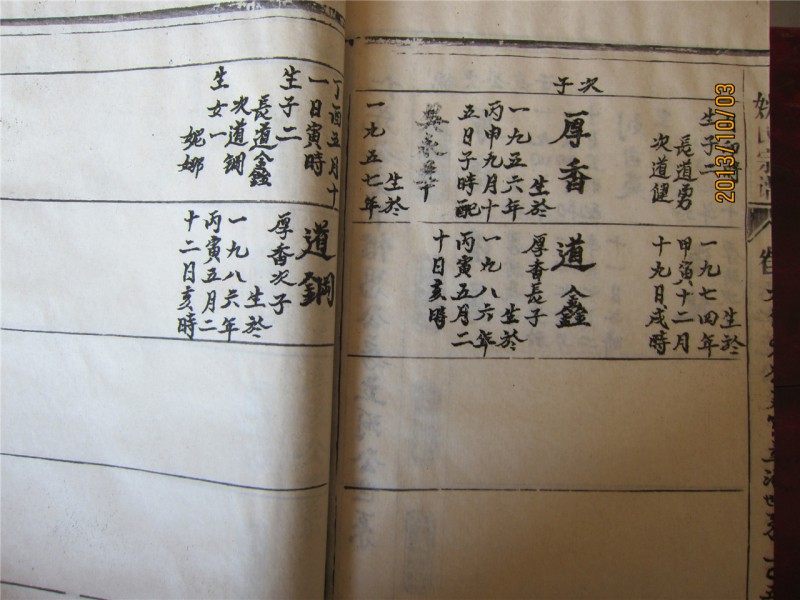 次子
生子二
長道勇
次道健
厚香
生於
一九五六年
丙申九月十
五日子時配
生於
一九五七年
生於
一九七四年
甲寅十二月
十九日戌時
道鑫
厚香長子
生於
一九八六年
丙寅五月二
十日亥時
丁酉五月十
一日寅時
生子二
長道鑫
次道鋼
生女一
妮娜
道鋼
厚香次子
生於
一九八六年
丙寅五月二
十二日亥時
2013/10/03